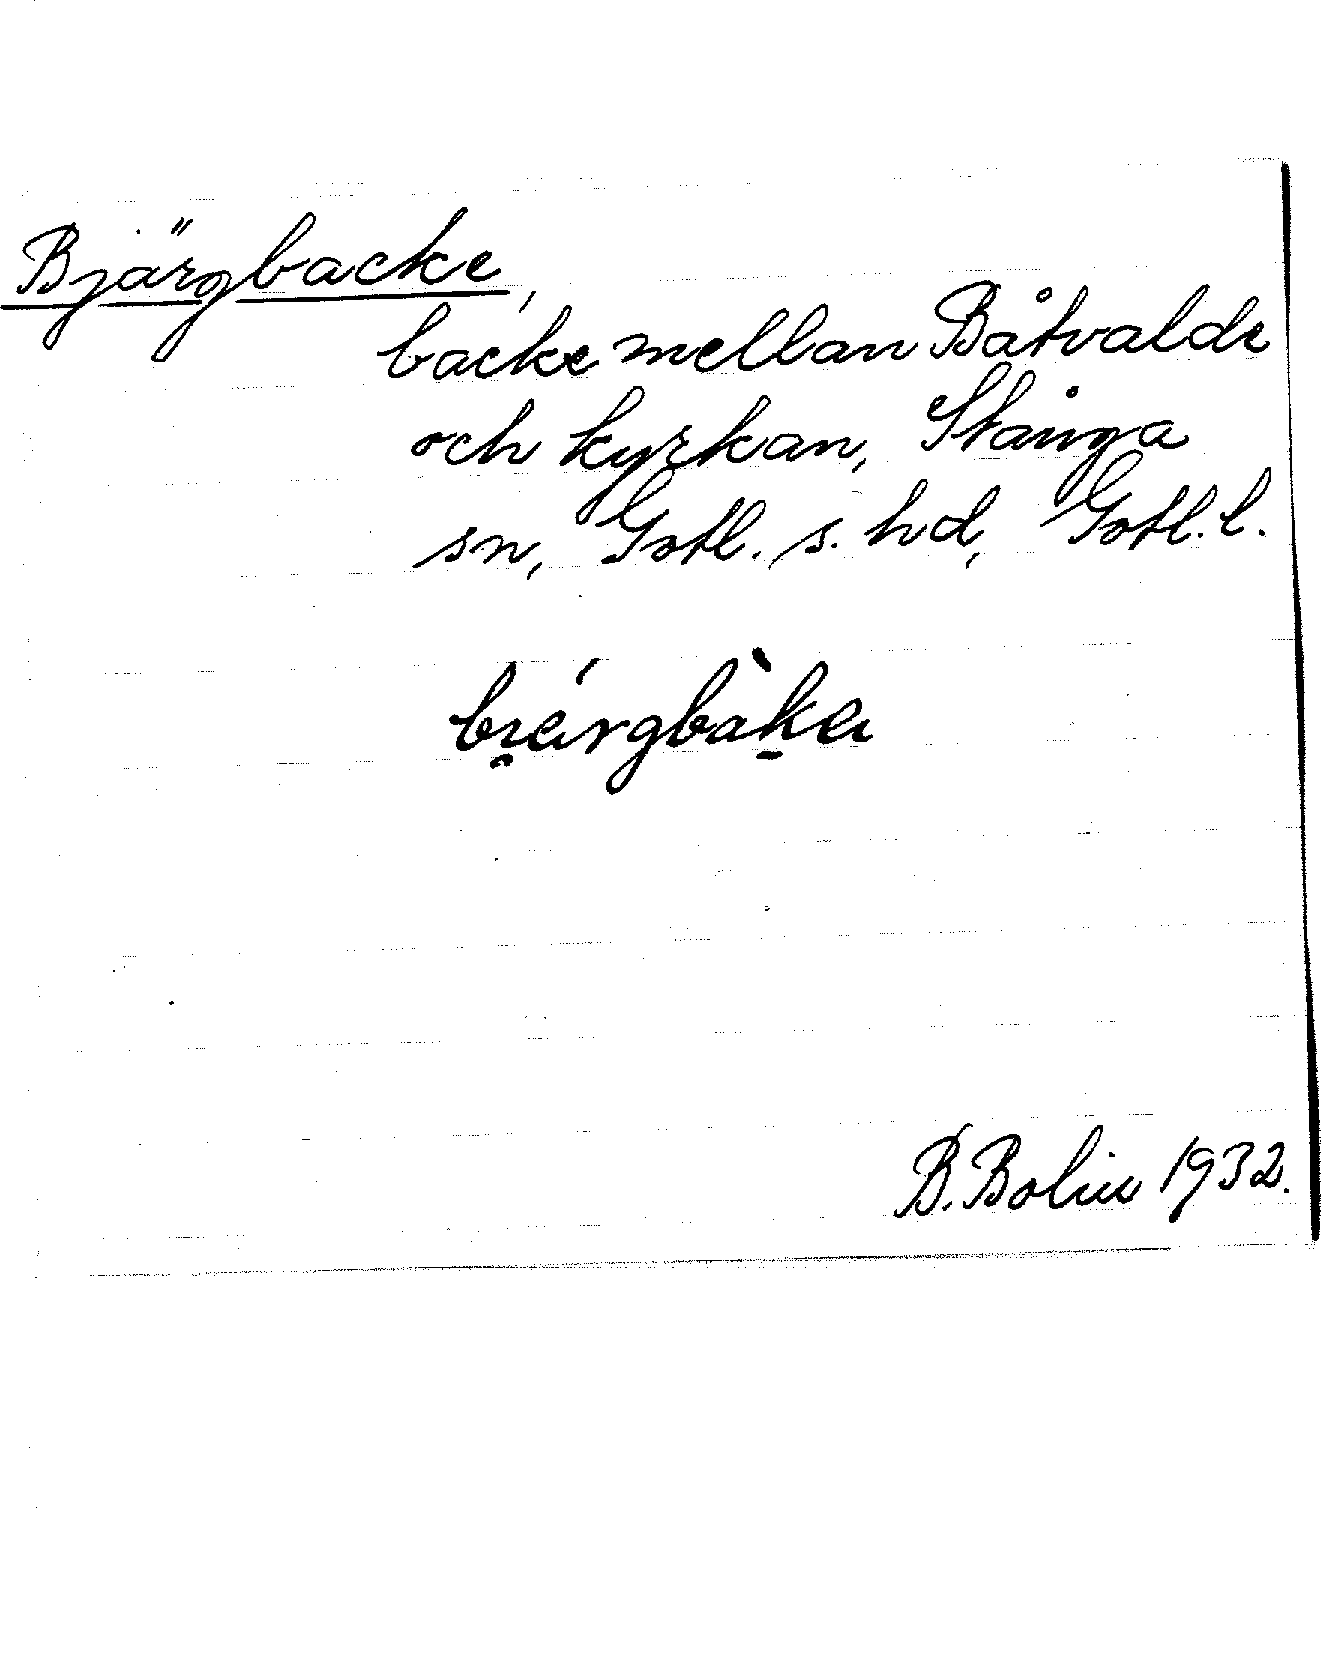 Bjärgbacke,
backe mellan Båtvalde
och kyrkan, Stånga
sn, Gotl. s. hd, Gotl. l.
B. Bolin 1932.